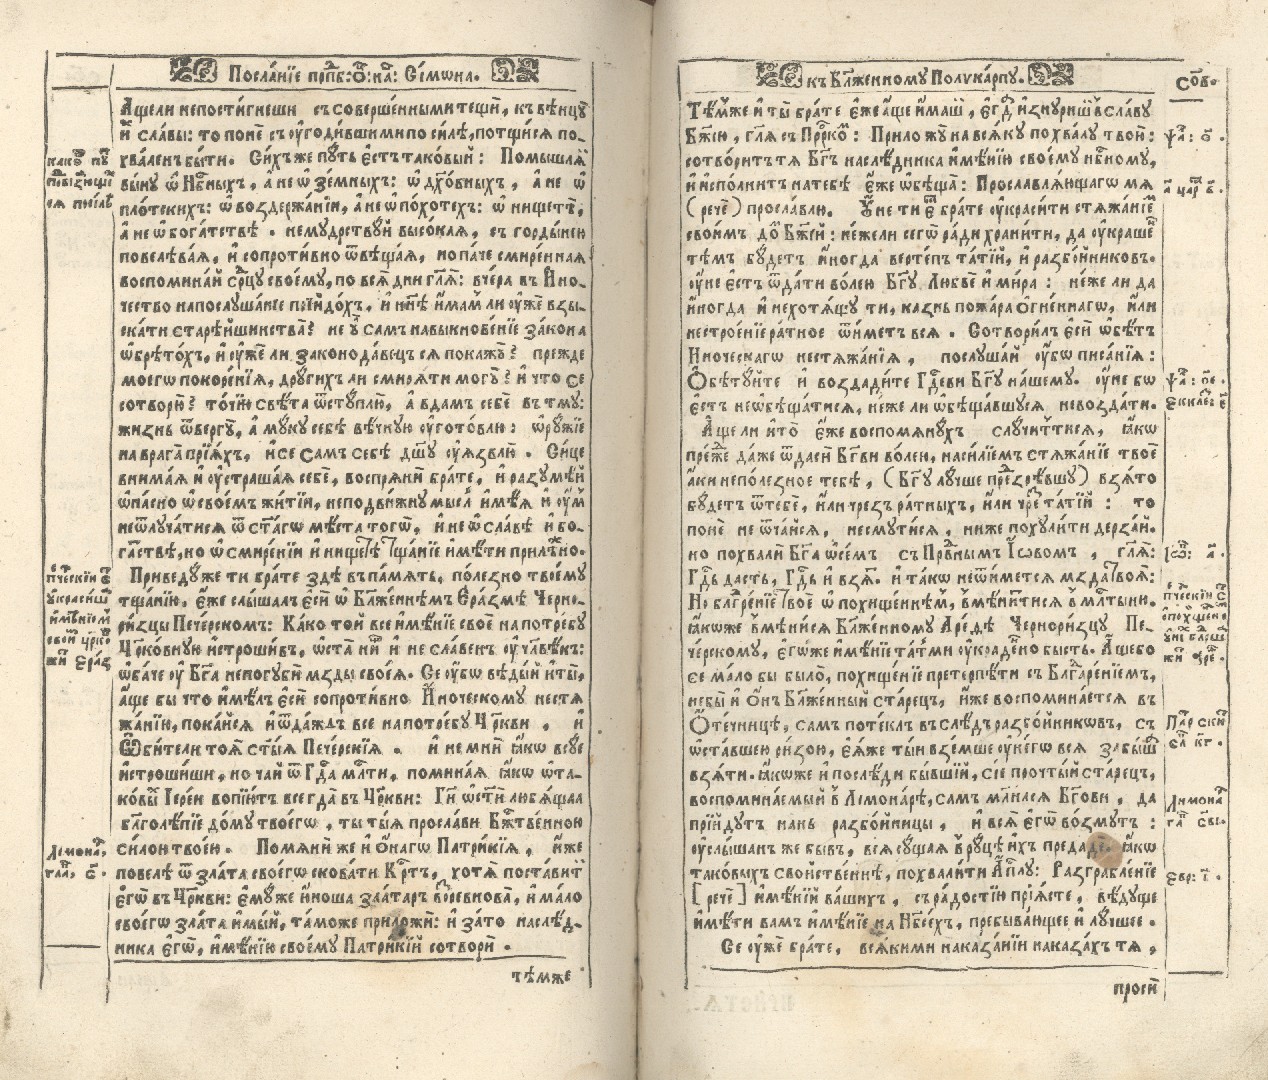 Посла́нїе прпⷣб: ѻ҃: на́: Сі́мѡна.
Аще ли непости́гнеши съ соверше́нными тещи̑, къ вѣнцꙋ̀
и҆ сла́вы: то поне̑ съ ᲂу҆годи́вшими по си́лѣ, потщи́ся по-
хва́ленъ бы́ти. Си́хъ же пꙋ́ть є҆́стъ тако́вый: Помышлѧ́й
вы́нꙋ ѡ҆ Нбⷭ҇ныхъ, а҆ не ѡ҆ Зе́мныхъ: ѡ҆ дх҃о́вныхъ, а҆ не ѡ҆
пло́тскихъ: ѡ҆ воздержа́нїи, а҆ не ѡ҆ по́хотехъ: ѡ҆ нищетѣ̀,
а҆ не ѡ҆ бога́тствѣ. не мꙋ́дрствꙋй высо́кая, съ го́рдынею
повелѣва́я, и҆ сопроти́вно ѿвѣща́я, но па́че смире́нная
воспомина́й ср҃цꙋ своемꙋ̀, по всѧ̑ дни̑ гл҃ѧ: вчера̀ въ И҆но-
чество на послꙋша́нїе прїидо́хъ, и҆ нн҃ѣ и҆́мамъ ли ᲂу҆жѐ взы-
ска́ти старѣ́йшинства? не ᲂу҆ са́мъ навыкнове́нїе зако́на
ѡ҆брѣто́хъ, и҆ ᲂу҆же́ ли законода́вецъ ся покажꙋ̀? пре́жде
моегѡ̀ покоре́нїя, дрꙋги́хъ ли смиря́ти могꙋ̀? и҆ что̀ се
сотвори́? то́чїю свѣ́та ѿстꙋплю̀, а҆ вда́мъ себѐ въ тмꙋ̀:
жи́знь ѿве́ргꙋ, а҆ мꙋ́кꙋ себѣ̀ вѣ́чнꙋю ᲂу҆гото́влю: ѡ҆рꙋ́жїе
на врага̀ прїя́хъ, и҆ се са́мъ себѣ̀ дш҃ꙋ ᲂу҆я́звлю. Си́це
внима́я и҆ ᲂу҆страша́я себѐ, воспряни̑ бра́те, и҆ разꙋмѣ́й
ѡ҆па́сно ѡ҆ свое́мъ житїи̑, неподви́жнꙋ мы́сль и҆мѣ́я и҆ ᲂу҆́мъ
не ѿлꙋча́тися ѿ ст҃а́гѡ мѣ́ста тогѡ̀, и҆ не ѡ҆ сла́вѣ и҆ бо-
га́тствѣ, но ѡ҆ смире́нїи и҆ нищетѣ̀ тща́нїе и҆мѣ́ти прилѣ́жно.
Приведꙋ́ же ти бра́те здѣ̀ въ па́мять, поле́зно твоемꙋ̀
тща́нїю, є҆́же слы́шалъ є҆сѝ ѡ҆ Блаже́ннѣмъ Єра́змѣ Черно-
ри́зцы Пече́рскомъ: Ка́ко то́й все и҆мѣ́нїе своѐ на потре́бꙋ
Цр҃ко́внꙋю и҆строши́въ, ѡ҆ста̀ ни́щъ и҆ не сла́венъ ᲂу҆ члв҃ѣкъ:
ѡ҆ба́че ᲂу҆ Бг҃а не погꙋбѝ мзды̀ своея̀. Се ᲂу҆́бо вѣ́дый и҆ ты̀,
а҆́ще бы что и҆мѣ́лъ є҆сѝ сопроти́вно И҆но́ческомꙋ нестя-
жа́нїю, пока́йся и҆ ѿда́ждь все на потре́бꙋ Цр҃кви, и҆
Ѻ҆би́тели тоя̀ ст҃ы́я Пече́рскїя. и҆ не мнѝ ꙗ҆́кѡ всꙋ́е
и҆строши́ши, но ча́й ѿ Гдⷭ҇а мл҃ти, помина́я ꙗ҆́кѡ ѡ҆ та-
ко́вы́ Іере́и вопїю́тъ всегда̀ въ Цр҃кви: Гдⷭ҇и ѡ҆ст҃ѝ любя́щая
благолѣ́пїе до́мꙋ твоегѡ̀, ты тыя̀ просла́ви Бжⷭ҇твенною
си́лою твое́ю. Помянѝ же и҆ ѻ҆́нагѡ Патри́кїя, и҆́же
повелѣ̀ ѿ зла́та своегѡ̀ скова́ти Крⷭ҇тъ, хотя̀ поста́вити
є҆гѡ̀ въ Цр҃кви: є҆мꙋ́же ю҆́ноша зла́таръ ꙇ҆ревнова̀, и҆ ма́ло
своегѡ̀ зла́та и҆мы́й, та́може приложѝ: и҆ за то̀ наслѣ́д-
ника є҆гѡ̀, и҆мѣ́нїю своемꙋ̀ Патри́кїй сотворѝ.
тѣ́мже
како̀ пꙋ́
ся писа́ѵ
ᲂу҆краси́ти
и҆мѣ́нїемъ
свои́мъ цр҃ко́
Лимона́р,
гла́, є҃.
къ Блаже́нномꙋ Полика́рпꙋ.
Тѣ́мже и҆ ты̀ бра́те є҆́же а҆́ще и҆́маши, є҆гда̀ и҆знꙋри́ши въ сла́вꙋ
Бж҃їю, гл҃я съ Прⷪ҇ро́комъ: Приложꙋ̀ на вся́кꙋ похва́лꙋ твою̀:
сотвори́тъ тя Бг҃ъ наслѣ́дника и҆мѣ́нїю своемꙋ̀ нбⷭ҇номꙋ,
и҆ и҆спо́лнитъ на тебѣ̀ є҆́же ѡ҆бѣща̀: Прославля́ющагѡ мя
(речѐ) просла́влю. Оу҆́не ти є҆́сть бра́те ᲂу҆краси́ти стяжа́нїемъ
свои́мъ до́мъ Бж҃їй: не́жели сегѡ̀ ра́ди храни́ти, да ᲂу҆краше́
тѣ́мъ бꙋ́детъ и҆ногда̀ верте́пъ та́тїй, и҆ разбо́йниковъ.
ᲂу҆́не є҆́стъ ѿда́ти во́лею Бг҃ꙋ Любвѐ и҆ ми́ра: не́же ли да
и҆ногда̀ и҆ нехотя́щꙋ ти, ка́знь пожа́ра ѻ҆́гненнагѡ, и҆лѝ
нестрое́нїе ра́тное ѿи́метъ вся. Сотвори́лъ є҆сѝ ѡ҆бѣ́тъ
И҆но́ческагѡ нестяжа́нїя, послꙋ́шай ᲂу҆́бо писа́нїя:
Ѻ҆бѣтꙋ́йте и҆ возда́дите Гдⷭ҇еви Бг҃ꙋ на́шемꙋ. ᲂу҆́не бо
є҆́стъ не ѡ҆бѣща́тися, не́же ли ѡ҆бѣща́вшꙋся не возда́ти.
А҆́ще ли и҆ то̀ є҆́же воспомянꙋ́хъ слꙋчи́ттися, ꙗ҆́кѡ
пре́жде да́же ѿда́си Бг҃ви во́лею, наси́лїемъ стяжа́нїе твоѐ
а҆́ки неполе́зное тебѣ̀, (Бг҃ꙋ лꙋ́чше презрѣ́вшꙋ) взя́то
бꙋ́детъ ѿ тебѐ, и҆лѝ чрезъ ра́тныхъ, и҆лѝ чре́зъ та́тїй: то
поне̑ не ѿча́йся, не смꙋти́ся, ниже похꙋли́ти дерза́й.
но похвалѝ Бг҃а ѡ҆ се́мъ съ Првⷣнымъ І҆ѡ́вомъ, гл҃я:
Гдⷭ҇ь да́стъ, Гдⷭ҇ь и҆ взя́. и҆ та́кѡ не ѿи́мется мзда̀ твоя̀:
Но благодаре́нїе твоѐ ѡ҆ похище́ннѣмъ, вмѣни́тися въ ми́лостыню.
ꙗ҆́коже вмѣни́ся Блаже́нномꙋ Аре́дѣ Черноризцꙋ Пе-
че́рскомꙋ, є҆гѡ́же и҆мѣ́нїе та́тми ᲂу҆кра́дено бысть. А҆́ще бо
се ма́ло бы бы́ло, похище́нїе претерпѣ́ти съ Благодаре́нїемъ,
не бы̀ и҆ ѻ҆́нъ Блаже́нный ста́рецъ, и҆́же воспомина́ется въ
Ѻ҆те́чницѣ, са́мъ поте́клъ въ слѣ́дъ разбо́йниковъ, съ
ѡ҆ста́вшею ри́зою, є҆я́же ты́и взе́мше ᲂу҆ негѡ̀ вся забы́ша
взя́ти. ꙗ҆́коже и҆ послѣди̑ бы́вшїй, сїе прочты́й ста́рецъ,
воспомина́емый въ Лимона́рѣ, са́мъ моли́лся Бг҃ови, да
прїи́дꙋтъ нань разбо́йницы, и҆ вся̀ є҆гѡ̀ во́змꙋтъ:
ᲂу҆слы́шанъ же бы́въ, вся сꙋ́щая въ рꙋ́цѣ и҆́хъ предадѐ. ꙗ҆́кѡ
тако́выхъ сво́йственнѣ, похвали́ти А҆пⷭ҇лꙋ: Разграбле́нїе
[речѐ] и҆мѣ́нїй ва́шихъ, съ ра́достїю прїя́сте, вѣ́дꙋще
и҆мѣ́ти ва́мъ и҆мѣ́нїе на Нбⷭ҇ехъ, пребыва́ющее и҆ лꙋ́чшее.
Се ᲂу҆жѐ бра́те, вся́кими наказа́нїи наказа́хъ тя,
проси̑
Ѱа́: ѻ҃.
а҃ ца́рⷭ҇ в҃.
Ѱа́: ѻ҃е.
Єклес: є҃
І҆ѡ́: а҃.
Па́тр ски́т
Лимона́р
Євр: і҃.